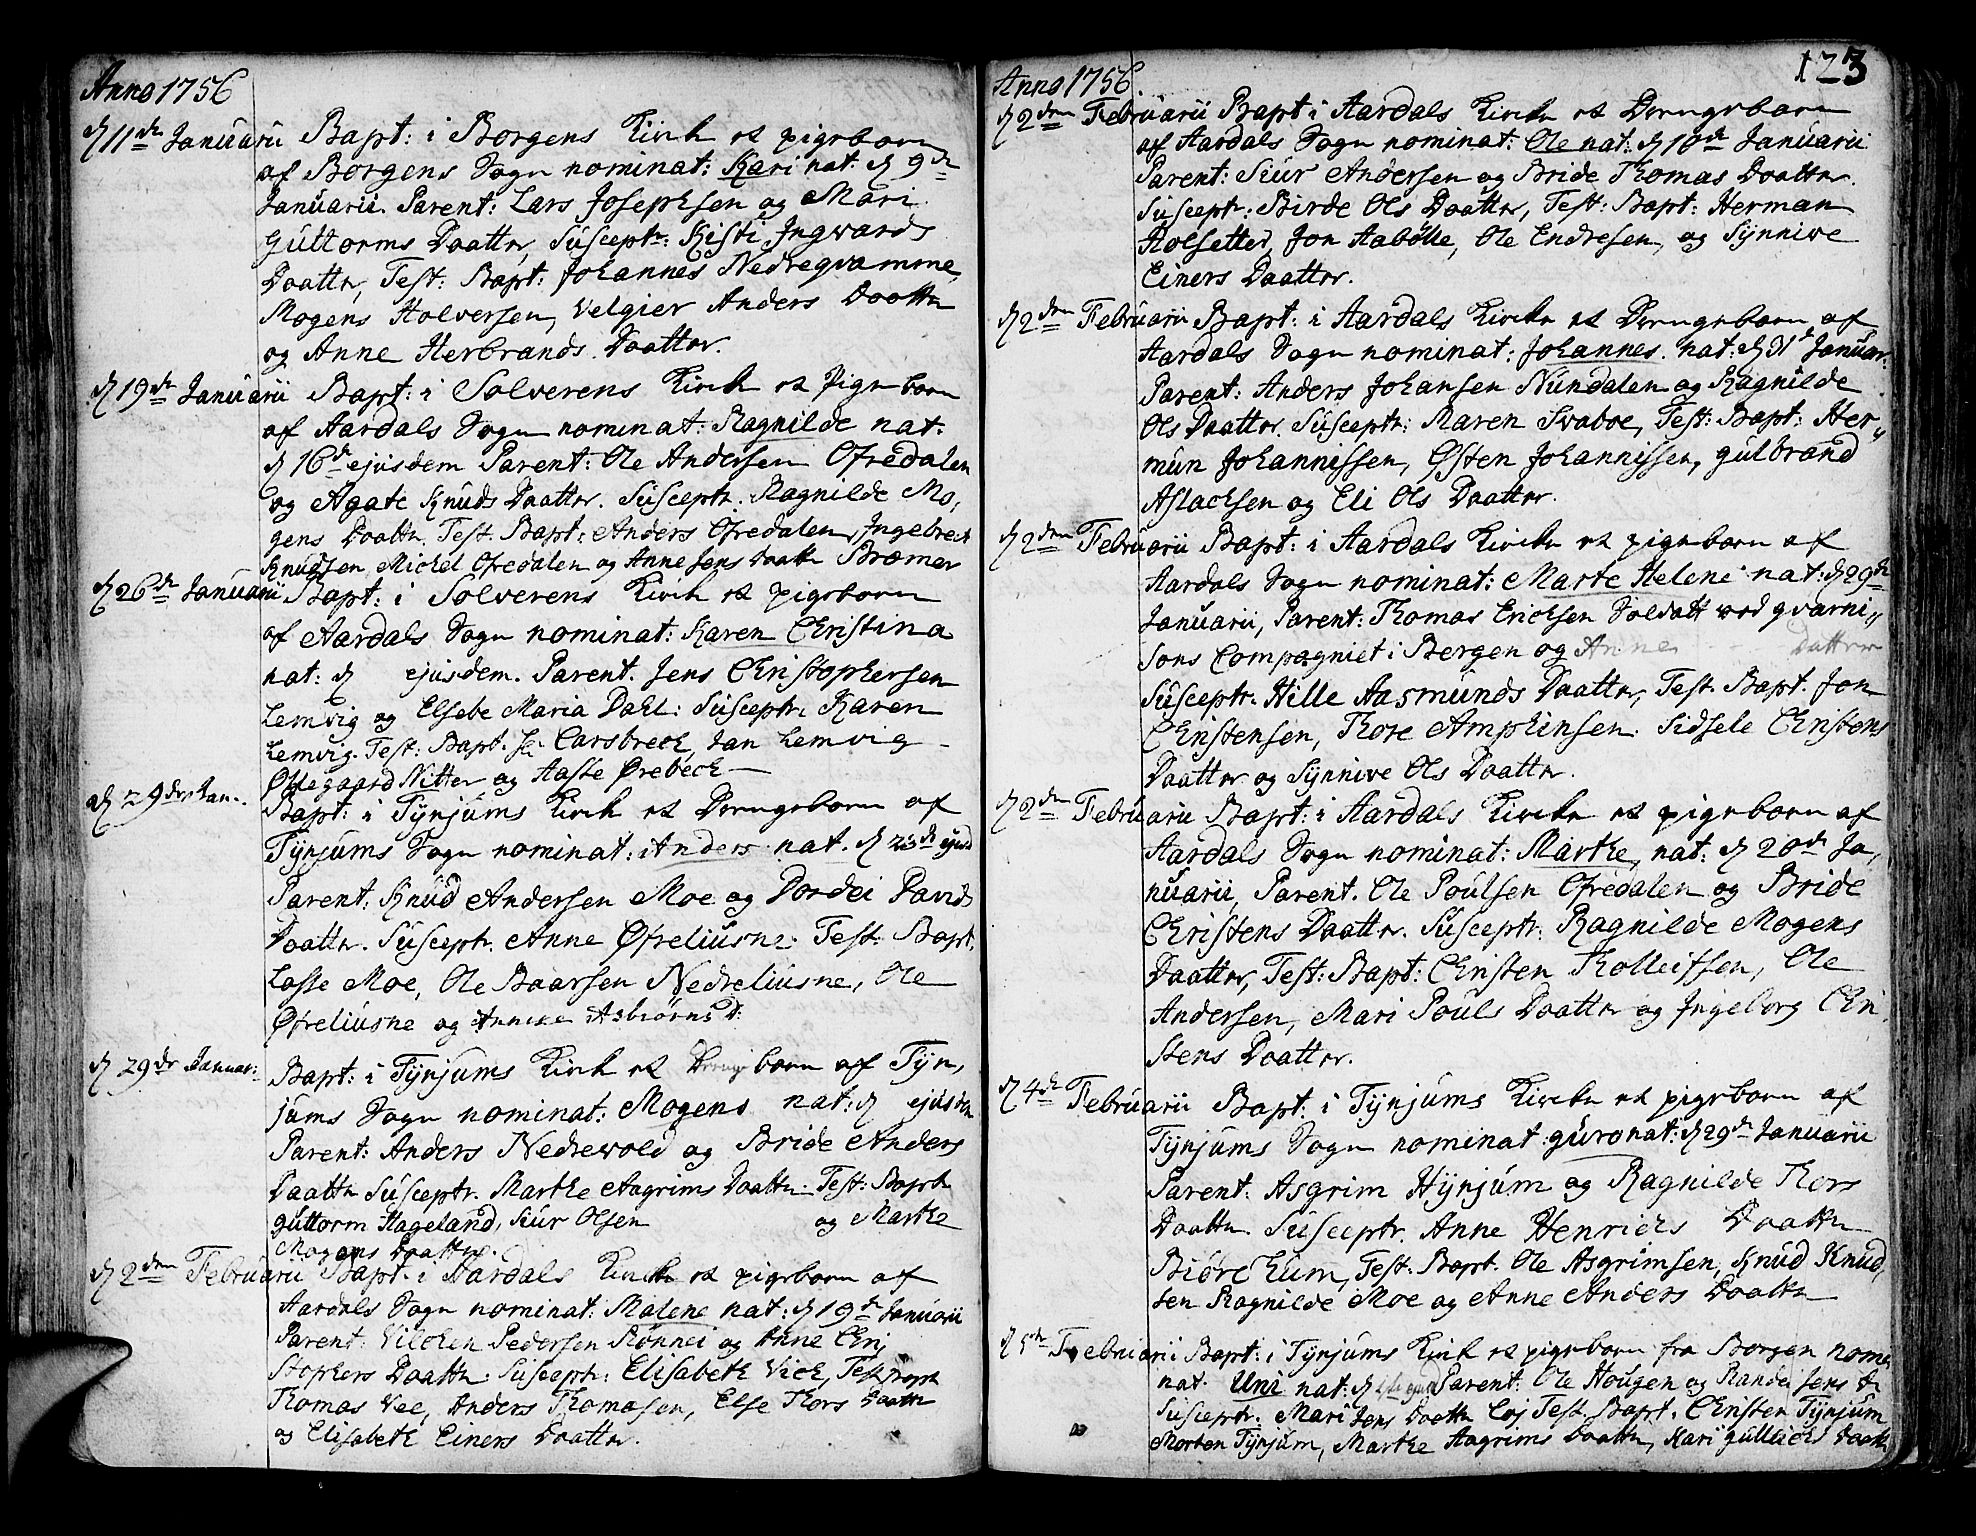 Anno 1756
d 11te Januarii Bapt: i Borgens Kirck et pigebarn
af Borgens Sogn nominat: Kari nat: d 9de
Januarii. Parent: Lars Josephsen og Mari
Guttorms Daatter, Susceptr: Kisti Ingwards
Daatter, Test: Bapt: Johannes Nedregvamme,
Mogens Halversen, Velgier Anders Daatter
og Anne Herbrands Daatter.
d 19de Januarii Bapt: i Solverens Kirck et Pige barn
af Aardals Sogn nominat: Ragnilde nat:
d 16de ejusdem Parent: Ole Andersen Ofredalen
og Agate Knuds Daatter. Susceptr. Ragnilde Mo,
gens Daatter Test: Bapt: Anders Ofredalen, Ingebrect
Knudsen, Michel Ofredalen og Anne Jens Daatter Bræmer
d 26de Januarii Bapt: i Solverens Kirck et pigebarn
af Aardals Sogn nominat: Karen Christina
nat: d ejusdem. Parent. Jens Christophersen
Lemvig og Elsebe Maria Dahl: Susceptr. Karen
Lemvig. Test: Bapt. Carsbreck, Jan Lemvig
Nitter og Aasse Ørebeck
d 29de Jan:
Bapt: i Tÿnjums Kirck et Drengebarn af
Tÿnjums Sogn nominat: Anders nat. d 23de ejusd
Parent: Knud Andersen Moe og Dordei Davids
Daatter. Susceptr. Anne Øfreliusne. Test: Bapt:
Lasse Moe, Ole Baarsen Nedreliusne, Ole
Øfreliusne og Anneke Asbiørns D:
d 29de Januar:
Bapt: i Tÿnjums Kirck et Drenge barn af Tÿn,
jums Sogn nominat: Mogens nat: d ejusdem
Parent: Anders Nedrewold og Bride Anders
Daatter Susceptr. Marthe Aagrims Daatter. Test: Bapt
Guttorm Hageland, Siur Olsen og Marthe
Mogens Daatter.
d 2den Februarii Bapt. i Aardals Kircke et pigebarn af
Aardals Sogn nominat: Malene nat: d 19de Januarii
Parent: Vilchen Pedersen Rønnei og Anne Chri
stophers Daatter. Susceptr: Elisabeth Vick, Test: Bapt
Thomas Vee, Anders Thomasen, Else Thors Daatter
og Elisabeth Einers Daatter.
123
Anno 1756
d 2den Februarii Bapt: i Aardals Kircke et Drengebarn
af Aardals Sogn nominat: Ole nat: d 10de Januarii
Parent: Siur Andersen og Bride Thomas Daatter.
Susceptr: Birde Ols Daatter, Test: Bapt: Herman
Holsetter, Jon Aabølle, Ole Endresen, og Sÿnnive
Einers Daatter.
d 2den Februarii Bapt: i Aardals Kircke et Drengebarn af
Aardals Sogn nominat: Johannes. nat: d 31te Januar:
Parent: Anders Johansen Nundalen og Ragnilde
Ols Daatter. Susceptr: Maren Svaboe, Test: Bapt: Her„
mun Johannissen, Østen Johannissen, Gulbrand
Aslachsen og Eli Ols Daatter.
d 2den Februarii Bapt: i Aardals Kircke et pigebarn af
Aardals Sogn nominat: Marte Helene nat: d 29de
Januarii, Parent: Thomas Erichsen Soldatt ved Qvarni„
sons Compagniet i Bergen og Anne Datter
Susceptr. Hille Aasmunds Daatter, Test. Bapt. Jon
Christensen, Thore Amphinsen. Sidsele Christens
Daatter og Sÿnnive Ols Daatter.
d 2den Februarii Bapt: i Aardals Kircke et pigebarn af
Aardals Sogn nominat: Marthe, nat: d 20de Ja,
nuarii, Parent. Ole Poulsen Ofredalen og Bride
Christens Daatter. Susceptr: Ragnilde Mogens
Daatter, Test: Bapt: Christen Tholleifsen, Ole
Andersen, Mari Pouls Daatter og Ingeborg Chri
stens Daatter.
d 4de Februarii Bapt: i Tÿnjums Kircke et pigebarn af
Tÿnjums Sogn nominat: Guro nat: d 29de Januarii
Parent: Asgrim Hÿnjum og Ragnilde Thors
Daatter Susceptr. Anne Henrichs Daatter
Biørckum, Test: Bapt. Ole Asgrimsen, Knud Knud,
sen Ragnilde Moe og Anne Anders Daatter
d 5te Februarii Bapt: i Tÿnjums Kirck et pigebarn fra Borgen nomi
nat. Uni nat: d Parent: Ole Hougen og Rande Jens D
Susceptr. Mari Jens Daatter Test. Bapt. Christen Tÿnjum
Morten Tÿnjum, Marthe Aagrims Daatter, Kari Gullichs Daatter